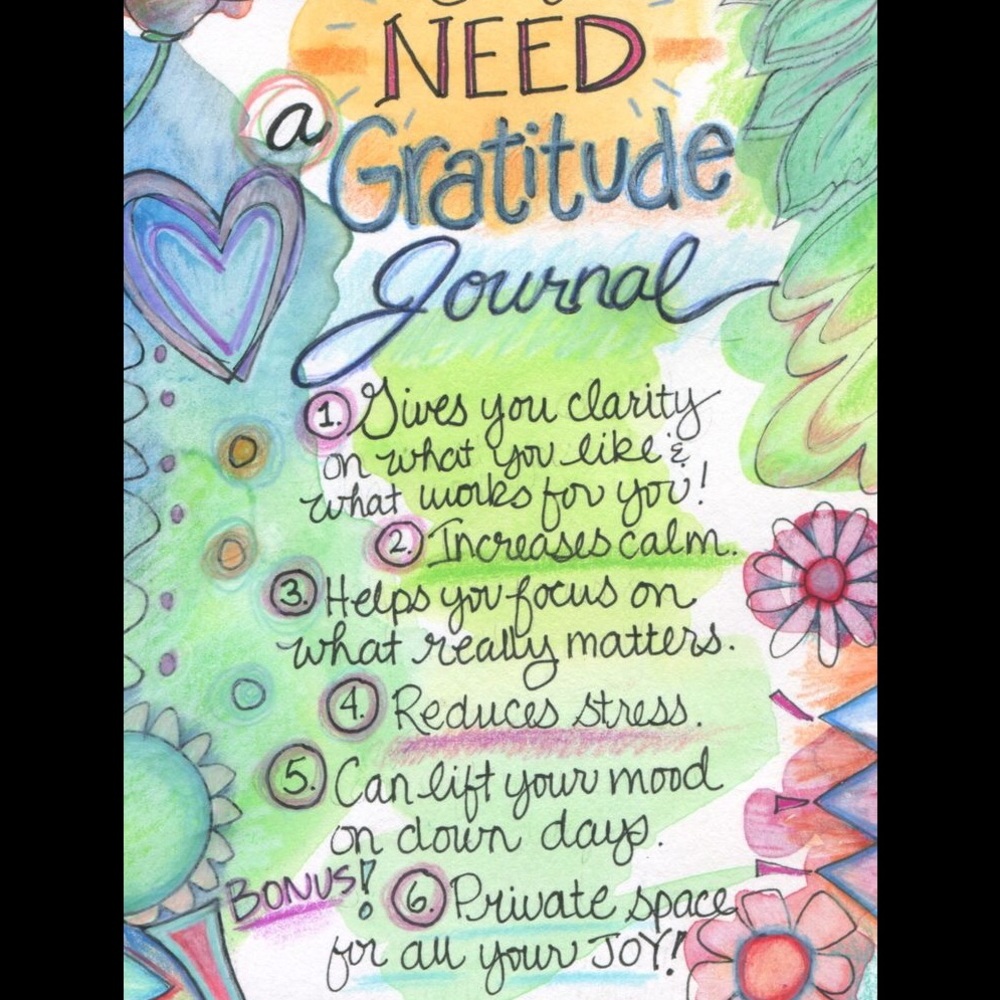 NEED
a
Gratitude
Journal
1. Gives you clarity
on what you like &
what works for you!
2. Increases calm.
3. Helps you focus on
what really matters.
4. Reduces stress.
5. Can lift your mood
on down days.
BONUS! 6. Private space
for all your JOY!